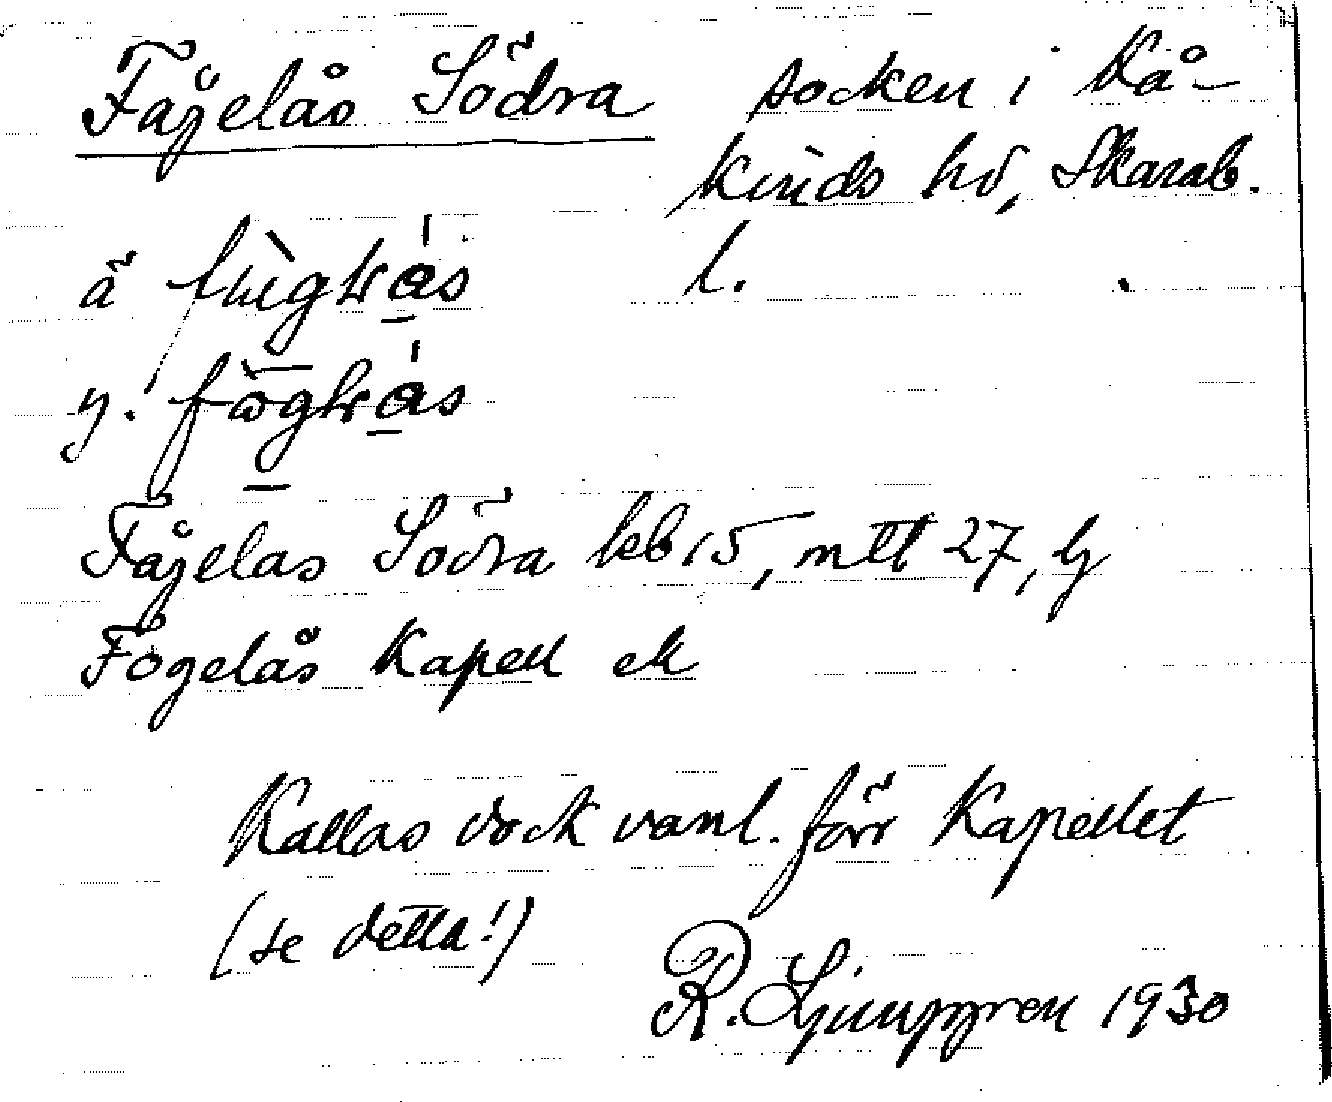 Fågelås Södra socken i Kå-
kinds hd, Skarab.
l.
ä
y.
Fågelas Södra kb 15, mtl 27, lj
Fogelås Kapell ek
Kallas dock vanl. förr Kapellet
(se detta!)
R. Ljunggren 1930